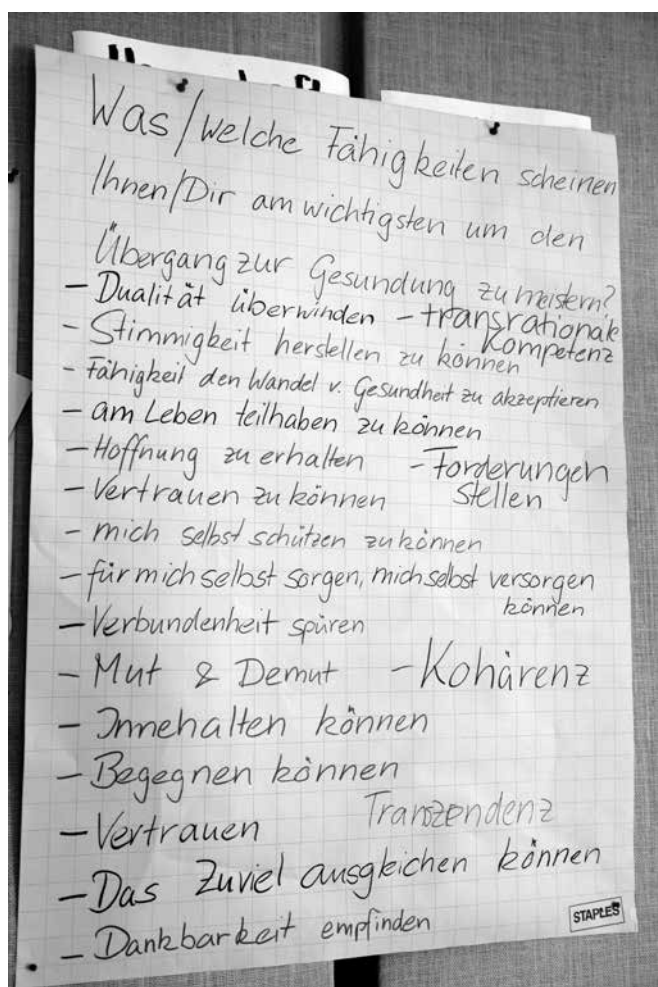 Was/welche Fähigkeiten scheinen
Ihnen/Dir am wichtigsten um den
Übergang zur Gesundung zu meistern?
- Dualität überwinden - transrationale
Kompetenz
- Stimmigkeit herstellen zu können
- Fähigkeit den Wandel v. Gesundheit zu akzeptieren
- am Leben teilhaben zu können
- Hoffnung zu erhalten - Forderungen
Stellen
- Vertrauen zu können
- mich selbst schützen zu können
- für mich selbst sorgen, mich selbst versorgen
können
- Verbundenheit spüren
- Mut & Demut - Kohärenz
- Innehalten können
- Begegnen können
- Vertrauen Transzendenz
- Das Zuviel ausgleichen können
- Dankbarkeit empfinden
STAPLES